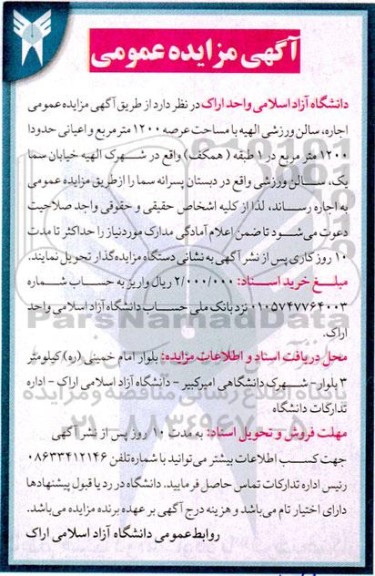 آگهی مزایده عمومی
دانشگاه آزاد اسلامی واحد اراک در نظر دارد از طریق آگهی مزایده عمومی
اجاره، سالن ورزشی الهیه با مساحت عرصه ۱۲۰۰ متر مربع و اعیانی حدودا
۱۲۰۰ متر مربع در ۱ طبقه (همکف) واقع در شهرک الهیه خیابان سما
یک، سالن ورزشی واقع در دبستان پسرانه سما را از طریق مزایده عمومی
به اجاره رساند، لذا از کلیه اشخاص حقیقی و حقوقی واجد صلاحیت
دعوت می‌شود تا ضمن اعلام آمادگی مدارک مورد نیاز را حداکثر تا مدت
۱۰ روز کاری پس از نشر آگهی به نشانی دستگاه مزایده گذار تحویل نمایند.
مبلغ خرید اسناد: ۲/۰۰۰/۰۰۰ ریال واریز به حساب شماره
۰۱۰۵۷۴۷۷۶۴۰۰۳ نزد بانک ملی حساب دانشگاه آزاد اسلامی واحد
اراک.
محل دریافت اسناد و اطلاعات مزایده: بلوار امام خمینی (ره) کیلومتر
۳ بلوار- شهرک دانشگاهی امیرکبیر - دانشگاه آزاد اسلامی اراک - اداره
تدارکات دانشگاه
مهلت فروش و تحویل اسناد: به مدت ۱۰ روز پس از نشر آگهی
جهت کسب اطلاعات بیشتر می‌توانید با شماره تلفن ۰۸۶۳۳۴۱۲۱۴۶
رئیس اداره تدارکات تماس حاصل فرمایید. دانشگاه در رد یا قبول پیشنهادها
دارای اختیار تام می‌باشد و هزینه درج آگهی بر عهده برنده مزایده می‌باشد.
روابط عمومی دانشگاه آزاد اسلامی اراک
ParsNamadData
پایگاه اطلاع رسانی مناقصه و مزایده
۰۲۱-۸۸۳۴۹۶۷۰-۵